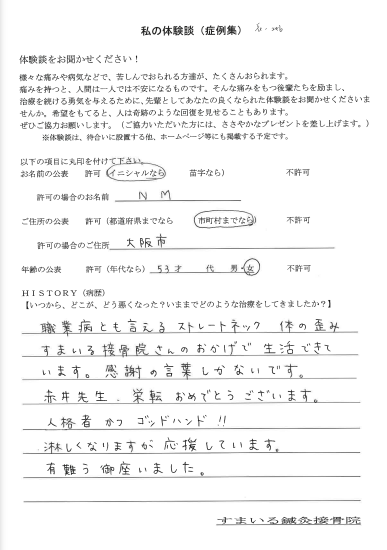 私の体験談（症例集）
体験談をお聞かせください！
様々な痛みや病気などで、苦しんでおられる方達が、たくさんおられます。
痛みを持つと、人間は一人では不安になるものです。そんな痛みをもつ後輩たちを励まし、
治療を続ける勇気を与えるために、先輩としてあなたの良くなられた体験談をお聞かせくださいま
せんか。希望をもてると、人は奇跡のような回復を見せることもあります。
ぜひご協力お願いします。（ご協力いただいた方には、ささやかなプレゼントを差し上げます。）
※体験談は、待合いに設置する他、ホームページ等にも掲載する予定です。
以下の項目に丸印を付けて下さい。
お名前の公表 許可（イニシャルなら 苗字なら） 不許可
許可の場合のお名前 N M
ご住所の公表 許可（都道府県までなら 市町村までなら） 不許可
許可の場合のご住所 大阪市
年齢の公表 許可（年代なら） 53才 代 男・女 不許可
HISTORY（病歴）
【いつから、どこが、どう悪くなった？いままでどのような治療をしてきましたか？】
職業病とも言える ストレートネック 体の歪み
すまいる接骨院さんのおかげで 生活できて
います。感謝の言葉しかないです。
赤井先生、栄転 おめでとうございます。
人格者 かつ ゴッドハンド!!
淋しくなりますが 応援しています。
有難う御座いました。
すまいる鍼灸接骨院